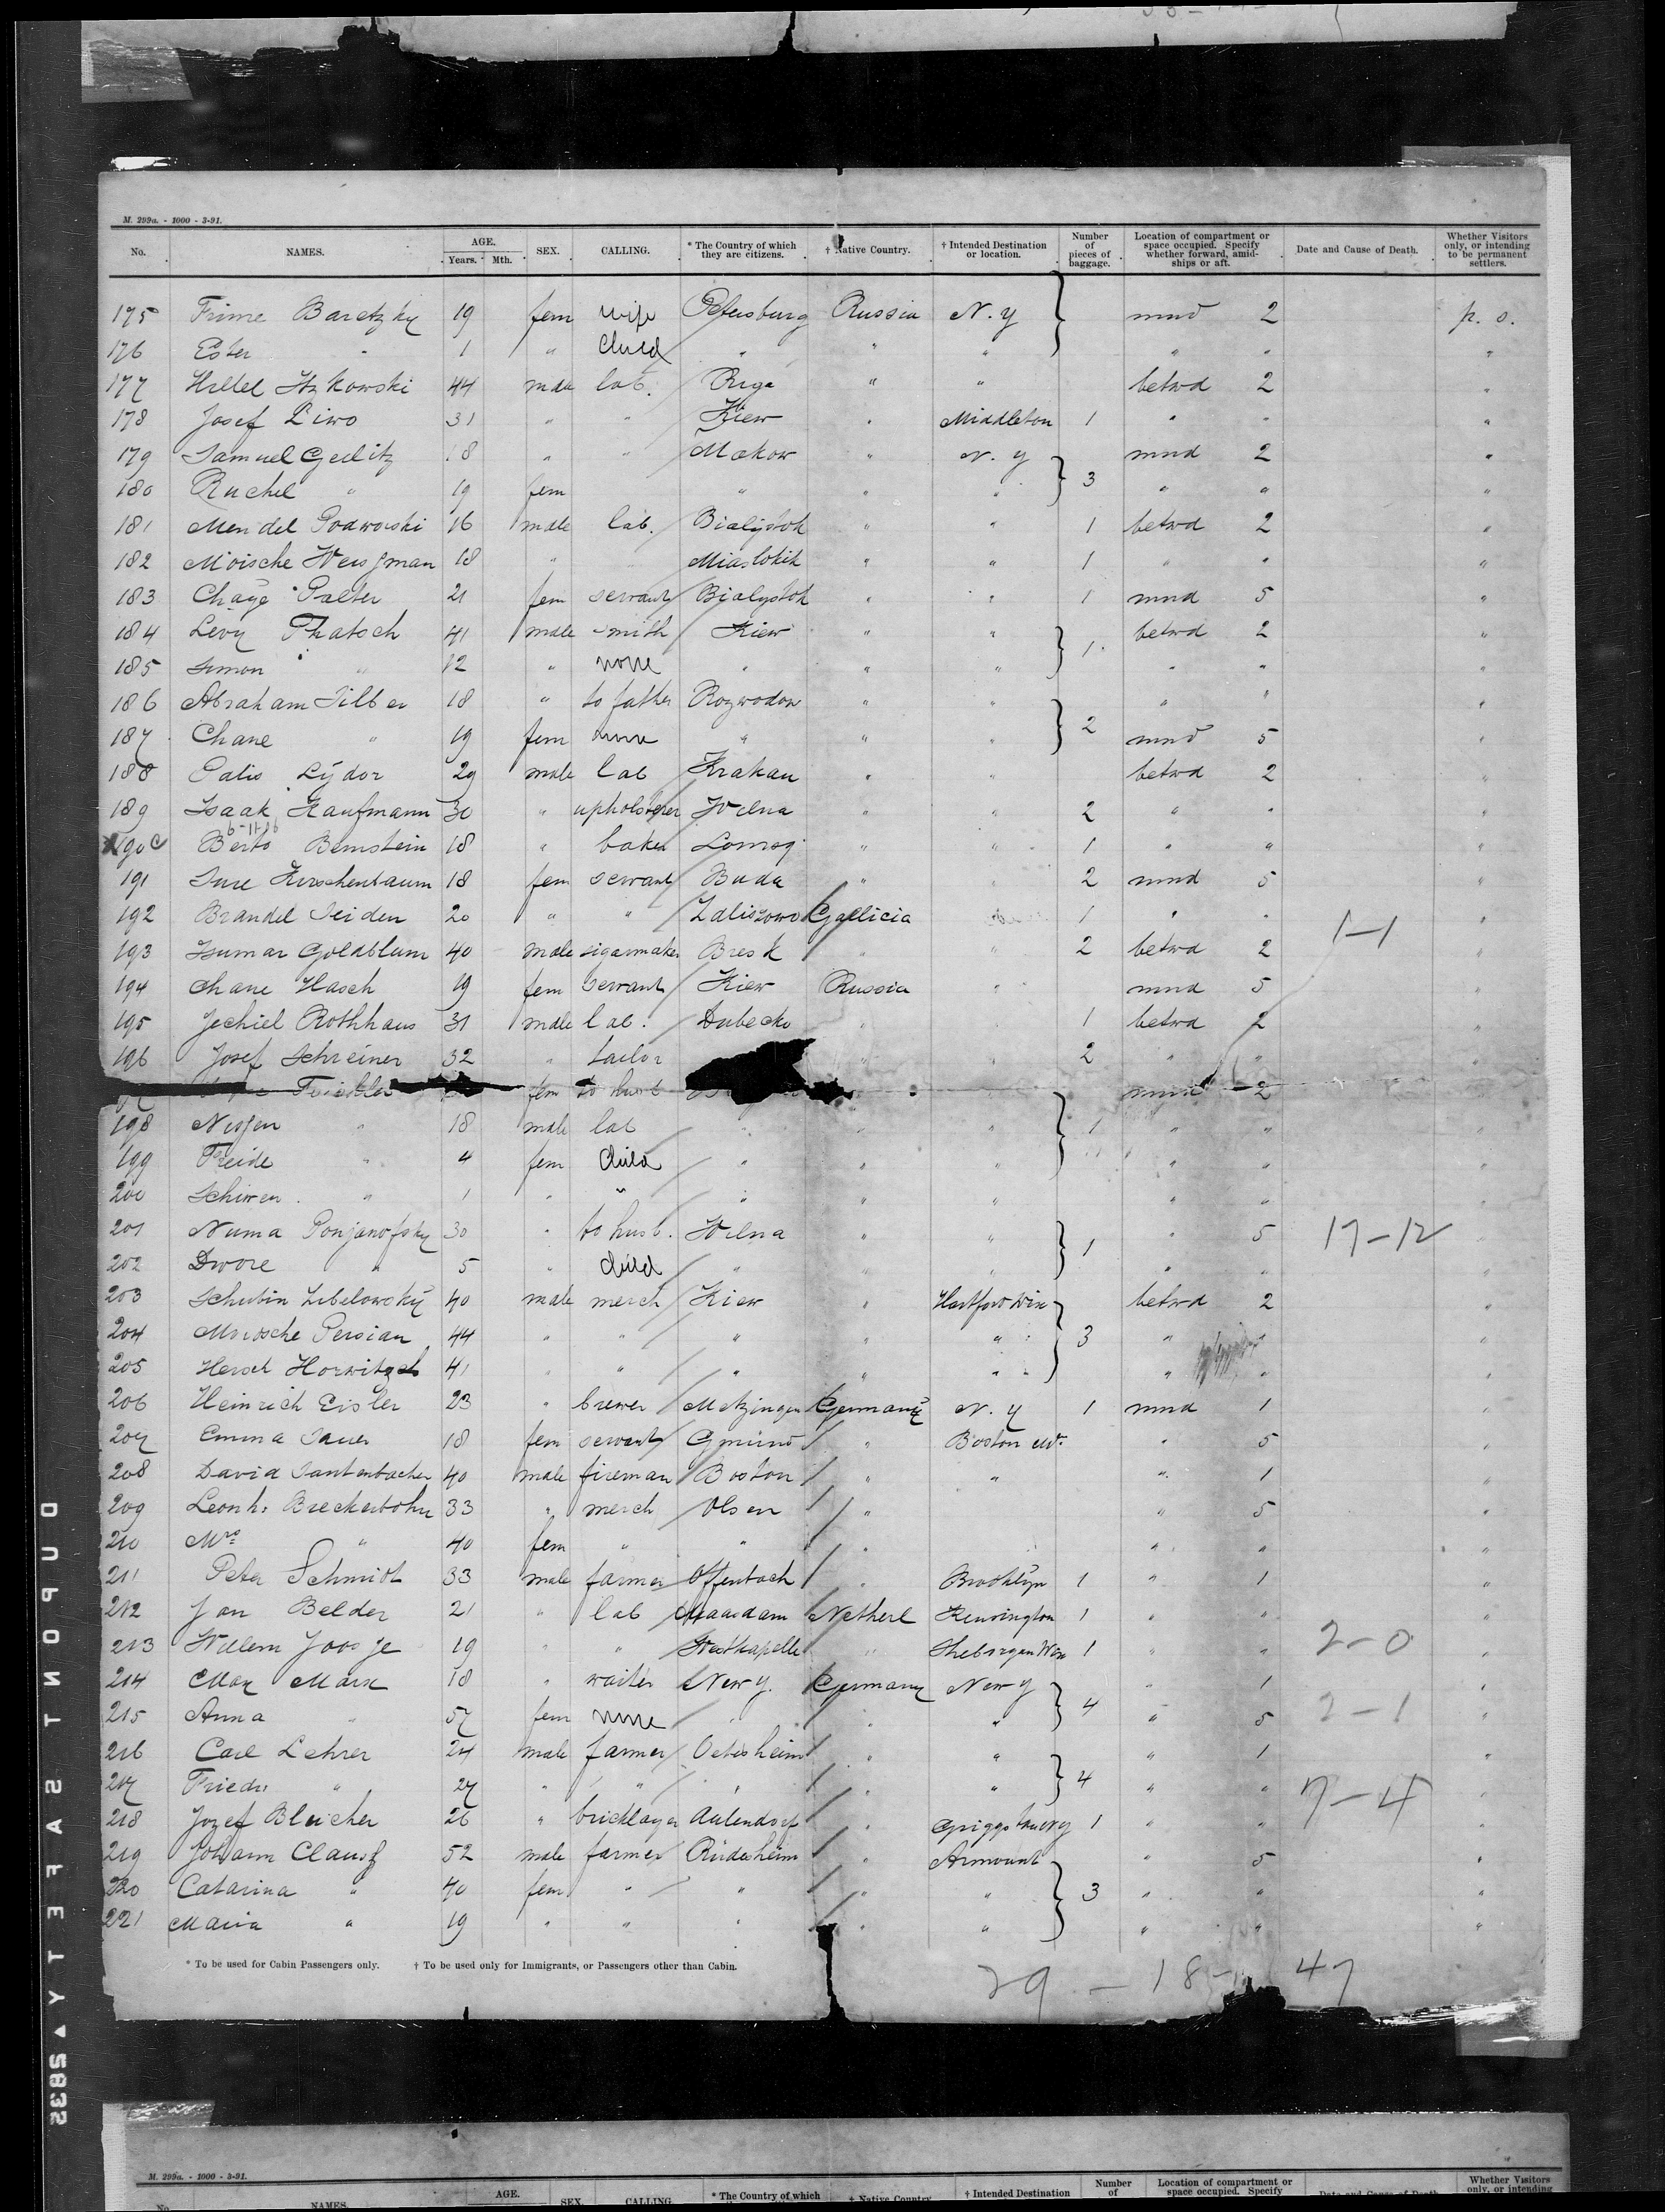 M. 299a. - 1000 - 3-91.
No. NAMES. AGE. Years. Mth. SEX. CALLING. * The Country of which they are citizens. † Native Country. † Intended Destination or location. Number of pieces of baggage. Location of compartment or space occupied. Specify whether forward, amidships or aft. Date and Cause of Death. Whether Visitors only, or intending to be permanent settlers.
175 Frime Baretzky 19 fem wife Petersburg Russia N. Y mnd 2 p. s.
176 Ester " 1 " child " " " " " "
177 Hillel Itzkowski 44 male lab. Riga " " betwd 2 "
178 Josef Liwo 31 " " Kiew " Middleton 1 " " "
179 Samuel Geilitz 18 " " Makow " N. Y mnd 2 "
180 Ruchel " 19 fem " " " 3 " " "
181 Mendel Podworski 16 male lab. Bialystok " " 1 betwd 2 "
182 Moische 18 " " " " 1 " " "
183 Chaye Palter 21 fem servant Bialystok " " 1 mnd 5 "
184 Levy 41 male smith Kiew " " 1 betwd 2 "
185 Simon " 12 " none " " " " " "
186 Abraham Silber 18 " to father Rozwadow " " " " "
187 Chane " 19 fem none " " " 2 mnd 5 "
188 Lydor 29 male lab Krakau " " betwd 2 "
189 Isaak Kaufmann 30 " upholsterer Wilna " " 2 " " "
6-11-06
190 c Berto Bernstein 18 " baker " " 1 " " "
191 Sure Kirschenbaum 18 fem servant Buda " " 2 mnd 5 "
192 Brandel Seiden 20 " " Galicia 1 " " "
1-1
193 Isumar Goldblum 40 male sigarmaker Bresk " " 2 betwd 2 "
194 Chane Hasch 19 fem servant Kiew Russia " mnd 5 "
195 Jechiel Rothhaus 31 male lab. Dubecko " " 1 betwd 2 "
196 Josef Schreiner 32 " tailor " " 2 " " "
fem to husb mnd 2
198 18 male lab " " " 1 " " "
199 Freide " 4 fem child " " " " " "
200 " 1 " " " " " " " "
201 Numa Ponjanofsky 30 " to husb. Wilna " " " 5 17-12 "
202 Dwore " 5 " child " " " 1 " " "
203 40 male merch Kiew " Hartford Win betwd 2 "
204 Moische Persian 44 " " " " " 3 " " "
205 Hersch Horwitzch 41 " " " " " " " "
206 Heinrich Eisler 23 " brewer Metzingen Germany N. Y 1 mnd 1 "
207 Emma Sauer 18 fem servant Gmünd " Boston " 5 "
208 David 40 male fireman Boston " " " 1 "
209 Leonh. 33 " merch Olsen " " 5 "
210 Mrs " 40 fem " " " " " "
211 Peter Schmidt 33 male farmer Offenbach " Brooklyn 1 " 1 "
212 Jan Belder 21 " lab Maasdam Netherl Kensington 1 " " "
213 Willem Joosje 19 " " Westkapelle " 1 " " 2-0 "
214 Max Marx 18 " waiter New Y. Germany New Y " 1 "
215 Anna " 57 fem none " " " 4 " 5 2-1 "
216 Carl Lehrer 24 male farmer Oetisheim " " " 1 "
217 Friedr " 27 " " " " " 4 " " 7-4 "
218 Jozef Bleicher 26 " bricklayer Aulendorf " 1 " " "
219 Johann Clausz 52 male farmer Rüdesheim " Armount " 5 "
220 Catarina " 40 fem " " " " 3 " " "
221 Maria " 19 " " " " " " " "
* To be used for Cabin Passengers only. † To be used only for Immigrants, or Passengers other than Cabin.
29 - 18 - 47
DUPONT SAFETY 5832
M. 299a. - 1000 - 3-91.
No. NAMES. AGE. SEX. CALLING. * The Country of which † Native Country. † Intended Destination Number of Location of compartment or space occupied. Specify Date and Cause of Death. Whether Visitors only, or intending